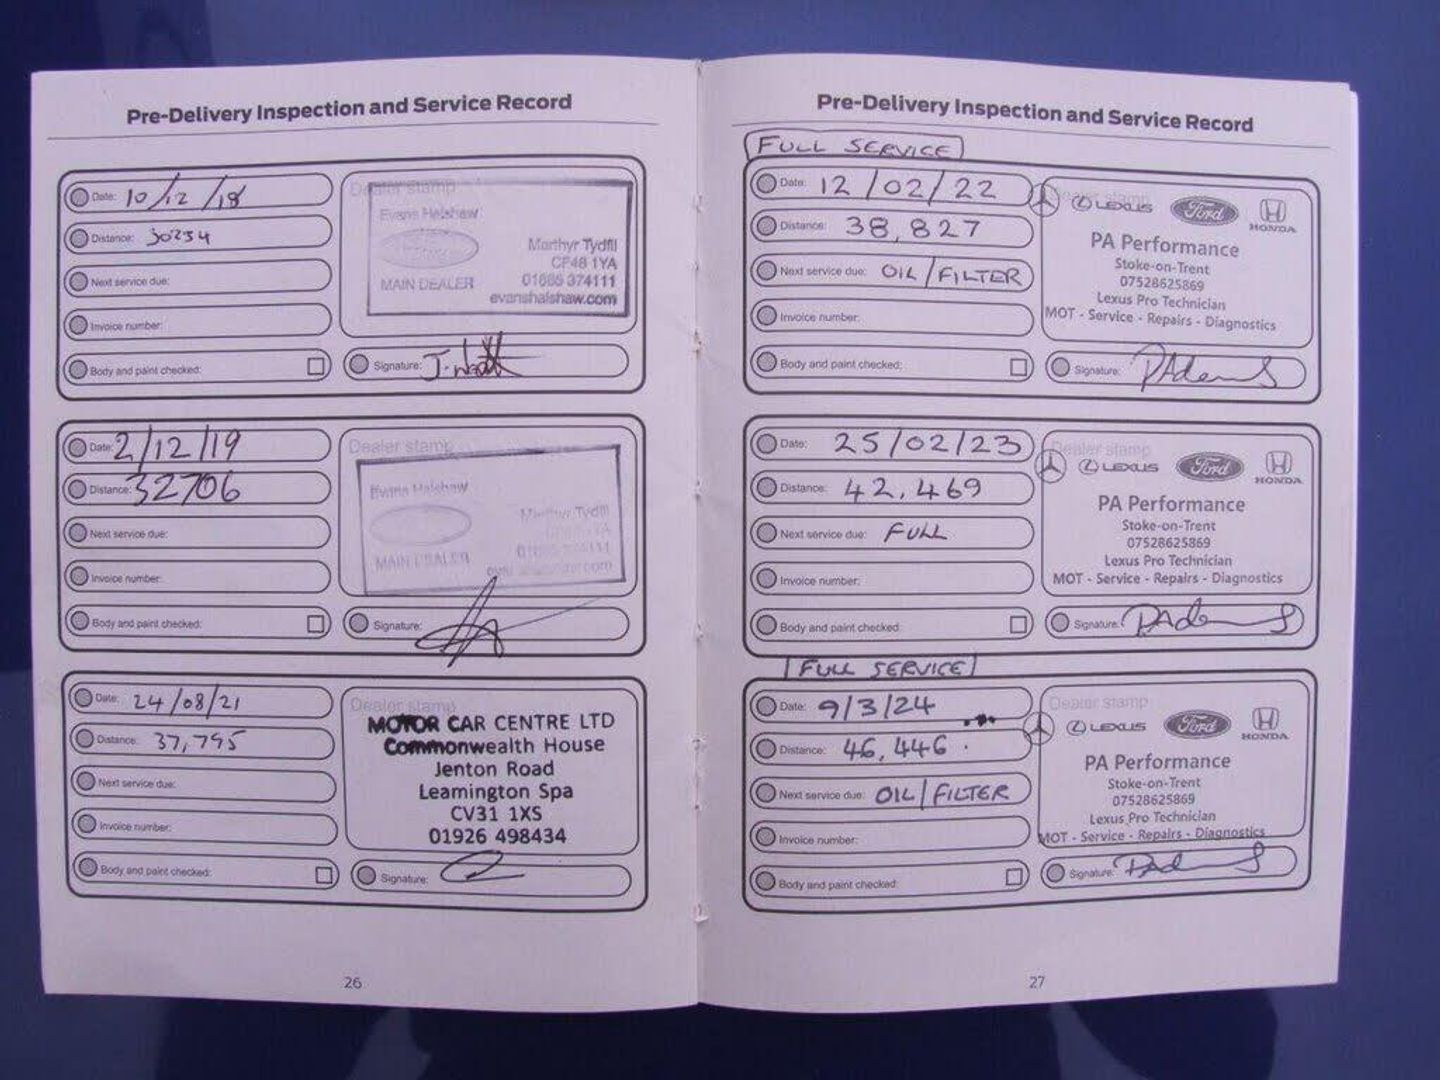 Pre-Delivery Inspection and Service Record
Date: 10/12/18
Dealer stamp
Evans Halshaw
Merthyr Tydfil
CF48 1YA
MAIN DEALER
01685 374111
evanshalshaw.com
Distance: 30234
Next service due:
Invoice number:
Body and paint checked:
Signature:
Date: 2/12/19
Dealer stamp
Evans Halshaw
Merthyr Tydfil
MAIN DEALER
Distance: 32706
Next service due:
Invoice number:
Body and paint checked:
Signature:
Date: 24/08/21
Dealer stamp
MOTOR CAR CENTRE LTD
Commonwealth House
Jenton Road
Leamington Spa
CV31 1XS
01926 498434
Distance: 37,795
Next service due:
Invoice number:
Body and paint checked:
Signature:
26
Pre-Delivery Inspection and Service Record
FULL SERVICE
Date: 12/02/22
Dealer stamp
LEXUS Ford HONDA
PA Performance
Stoke-on-Trent
07528625869
Lexus Pro Technician
MOT - Service - Repairs - Diagnostics
Distance: 38,827
Next service due: OIL/FILTER
Invoice number:
Body and paint checked:
Signature: PAdams
Date: 25/02/23
Dealer stamp
LEXUS Ford HONDA
PA Performance
Stoke-on-Trent
07528625869
Lexus Pro Technician
MOT - Service - Repairs - Diagnostics
Distance: 42,469
Next service due: FULL
Invoice number:
Body and paint checked:
Signature: PAdams
FULL SERVICE
Date: 9/3/24
Dealer stamp
LEXUS Ford HONDA
PA Performance
Stoke-on-Trent
07528625869
Lexus Pro Technician
MOT - Service - Repairs - Diagnostics
Distance: 46,446
Next service due: OIL/FILTER
Invoice number:
Body and paint checked:
Signature: PAdams
27